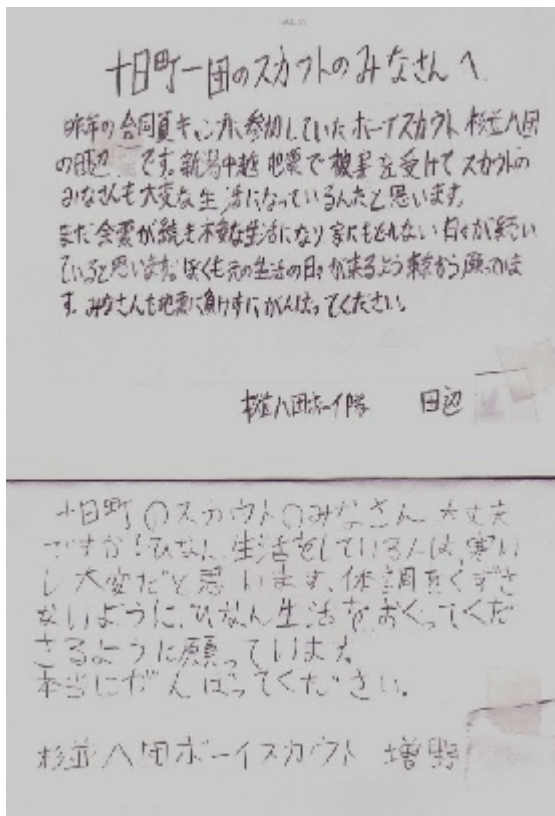 十日町一団のスカウトのみなさんへ
昨年の合同夏キャンプに参加していたボーイスカウト杉並八団
の田辺 です。新潟中越地震で被害を受けてスカウトの
みなさんも大変な生活になっているんだと思います。
まだ余震が続き不安な生活になり家にもどれない日々が続い
ていると思います。ぼくも元の生活の日々が来るよう東京から願っていま
す。みなさんも地震に負けずにがんばってください。
杉並八団ボーイ隊 田辺
十日町のスカウトのみなさん大丈夫
ですか!ひなん生活をしている人は、寒い
し大変だと思います。体調をくずさ
ないように、ひなん生活をおくってくだ
さるように願っています。
本当にがんばってください。
杉並八団ボーイスカウト 増野